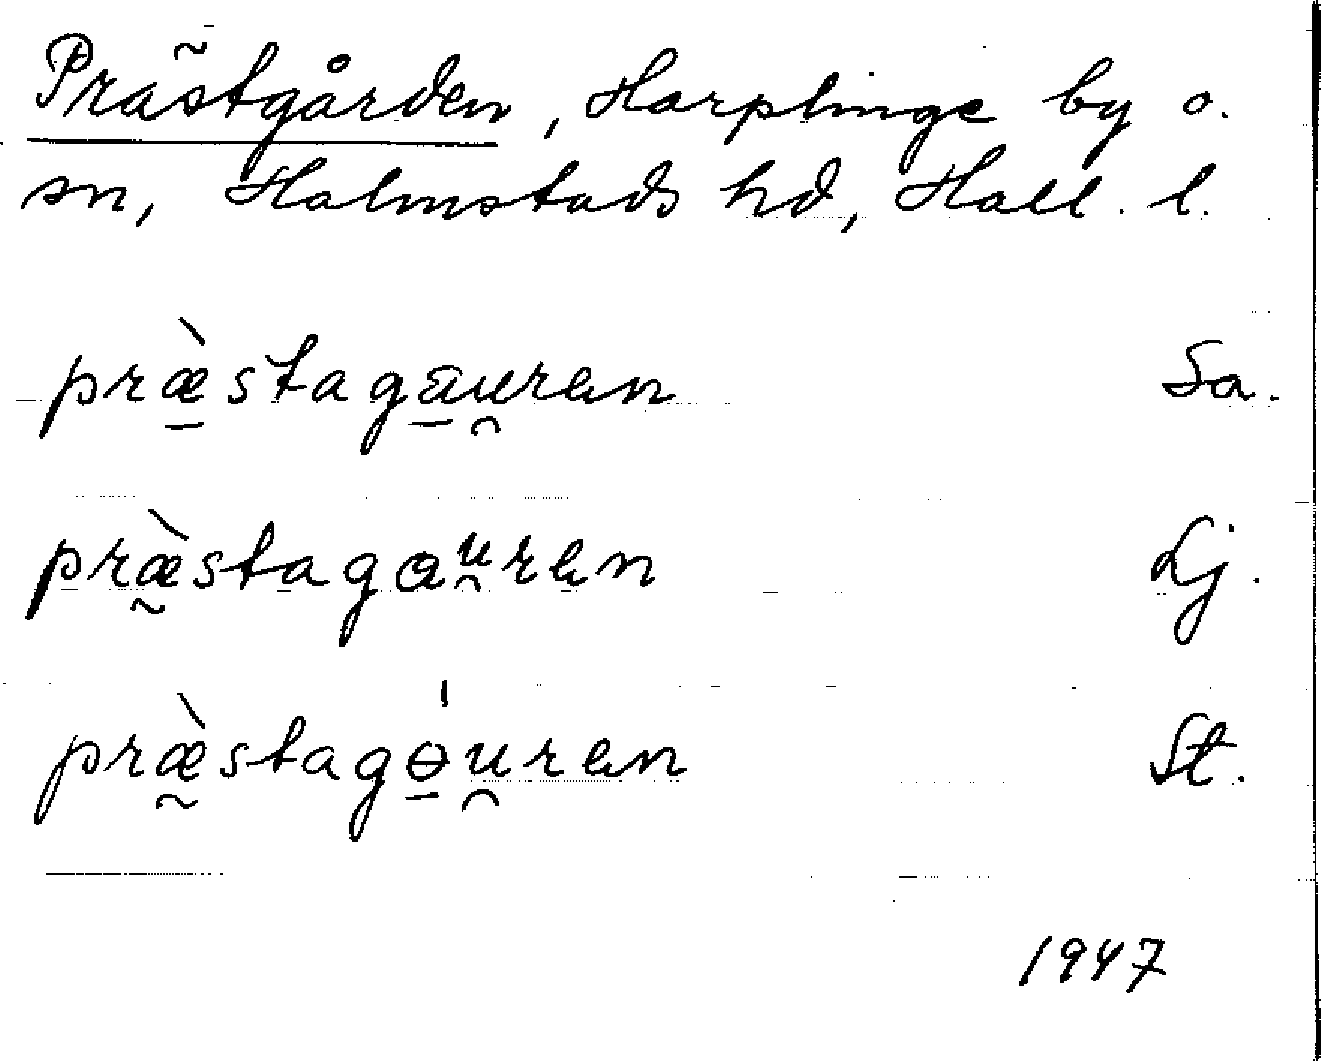 Prästgården, Harplinge by o.
sn, Halmstads hd, Hall. l.
præ̱̀staga̱u̯rɐn Sa.
præ̰̀stagɑᵘ̯rɐn Lj.
præ̰̀stagɵ̱́u̯rɐn St.
1947